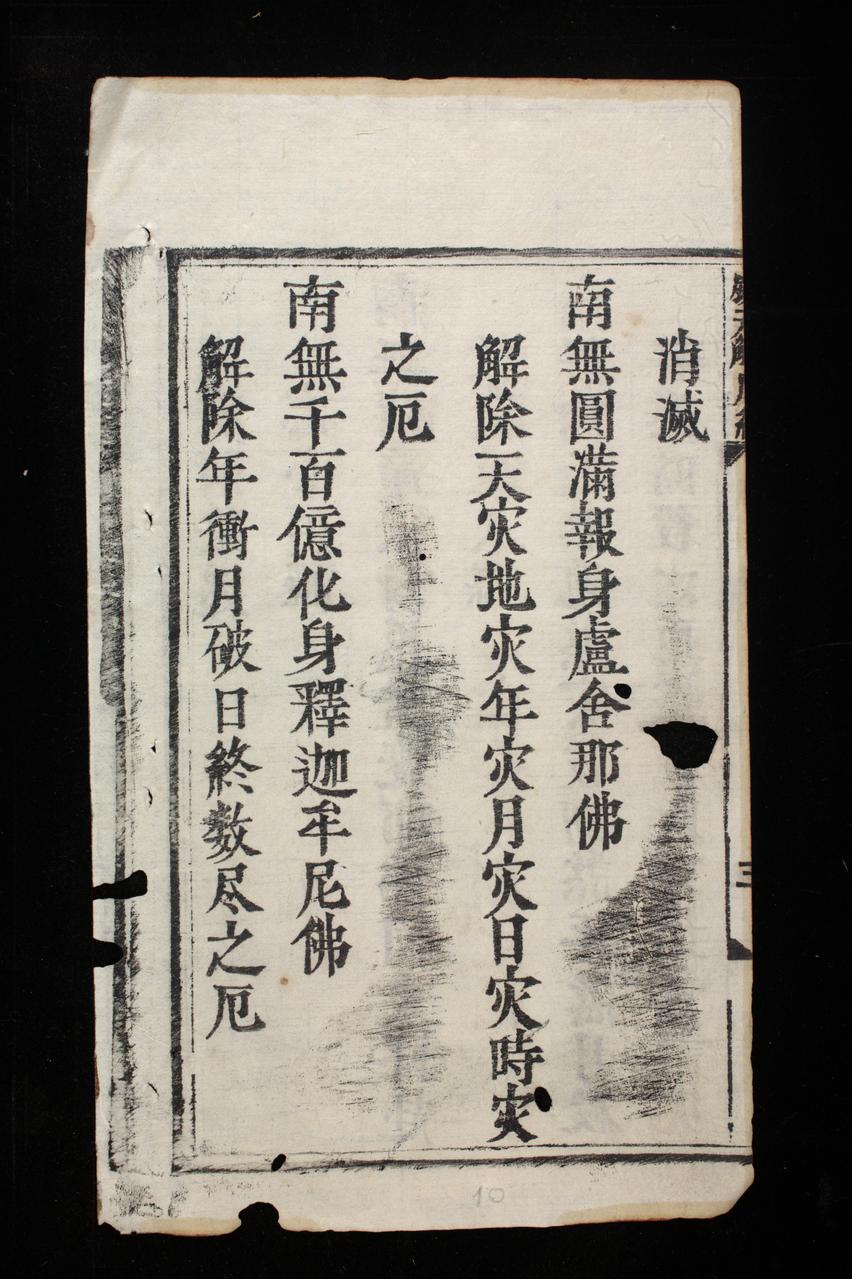 消滅
南無圓滿報身盧舍那佛
解除天灾地灾年灾月灾日灾時灾
之厄
南無千百億化身釋迦牟尼佛
解除年衝月破日終数尽之厄
三
10